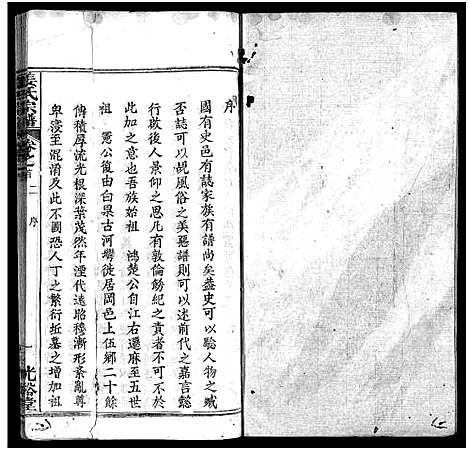 序
國有史邑有誌家族有譜尚矣蓋史可以驗人物之臧
否誌可以覘風俗之美惡譜則可以述前代之嘉言懿
行啟後人景仰之思凡有敦倫飭紀之責者不可不於
此加之意也吾族始祖 鴻楚公自江右遷麻至五世
祖 憲公復由白杲古河灣徙居岡邑上伍鄉二十餘
傳積厚流光根深葉茂然年湮代遠昭穆漸形紊亂尊
卑寖至混淆及此不圖恐人丁之繁衍坵墓之增加祖
姜氏宗譜
卷之首
二
序
光裕堂